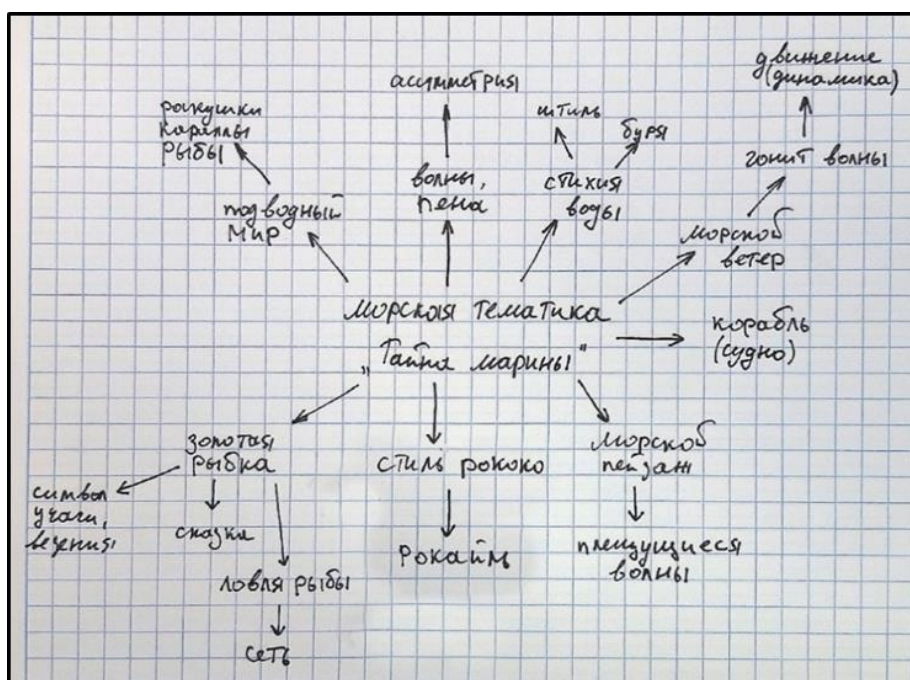 движение
(динамика)
асимметрия
ракушки
кораллы
рыбы
штиль
буря
гонит волны
волны,
пена
стихия
воды
подводный
мир
морской
ветер
морская тематика
"Тайна марины"
корабль
(судно)
золотая
рыбка
стиль рококо
морской
пейзаж
символ
удачи,
везения
сказка
рокайль
плещущиеся
волны
ловля рыбы
сеть